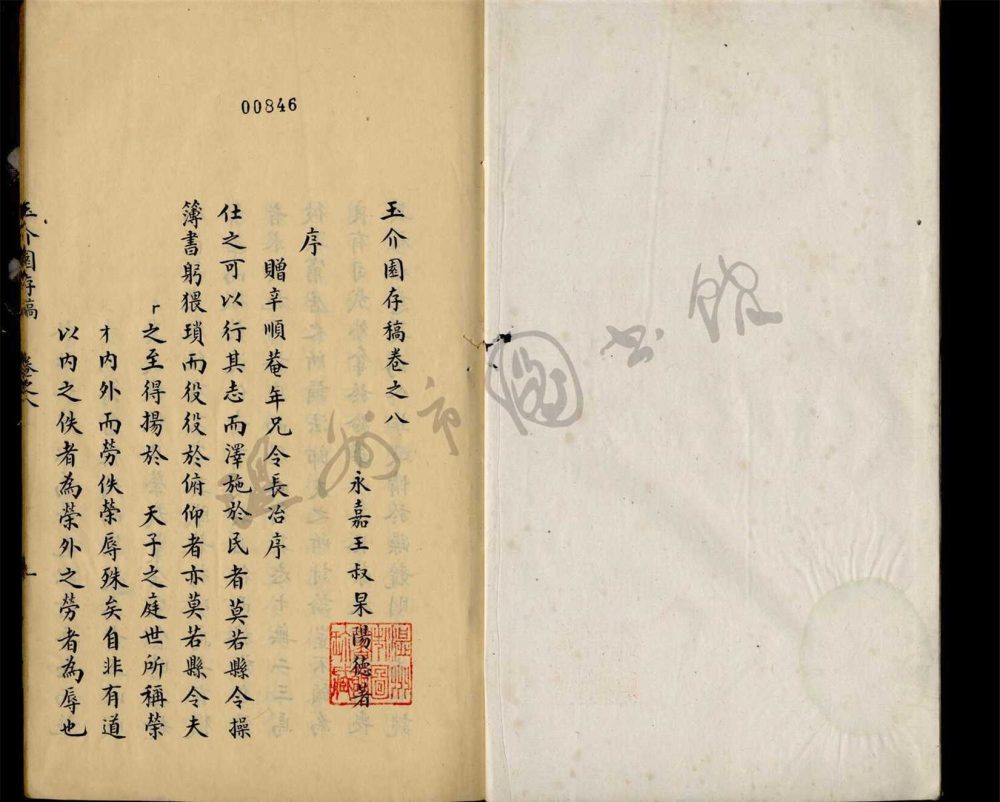 00846
玉介園存稿卷之八
永嘉王叔杲陽德著
序
贈辛順菴年兄令長治序
仕之可以行其志而澤施於民者莫若縣令操
簿書躬猥瑣而役役於俯仰者亦莫若縣令夫
之至得揚於 天子之庭世所稱榮
才內外而勞佚榮辱殊矣自非有道
以內之佚者為榮外之勞者為辱也
玉介園存稿 卷之八
溫州市圖書館